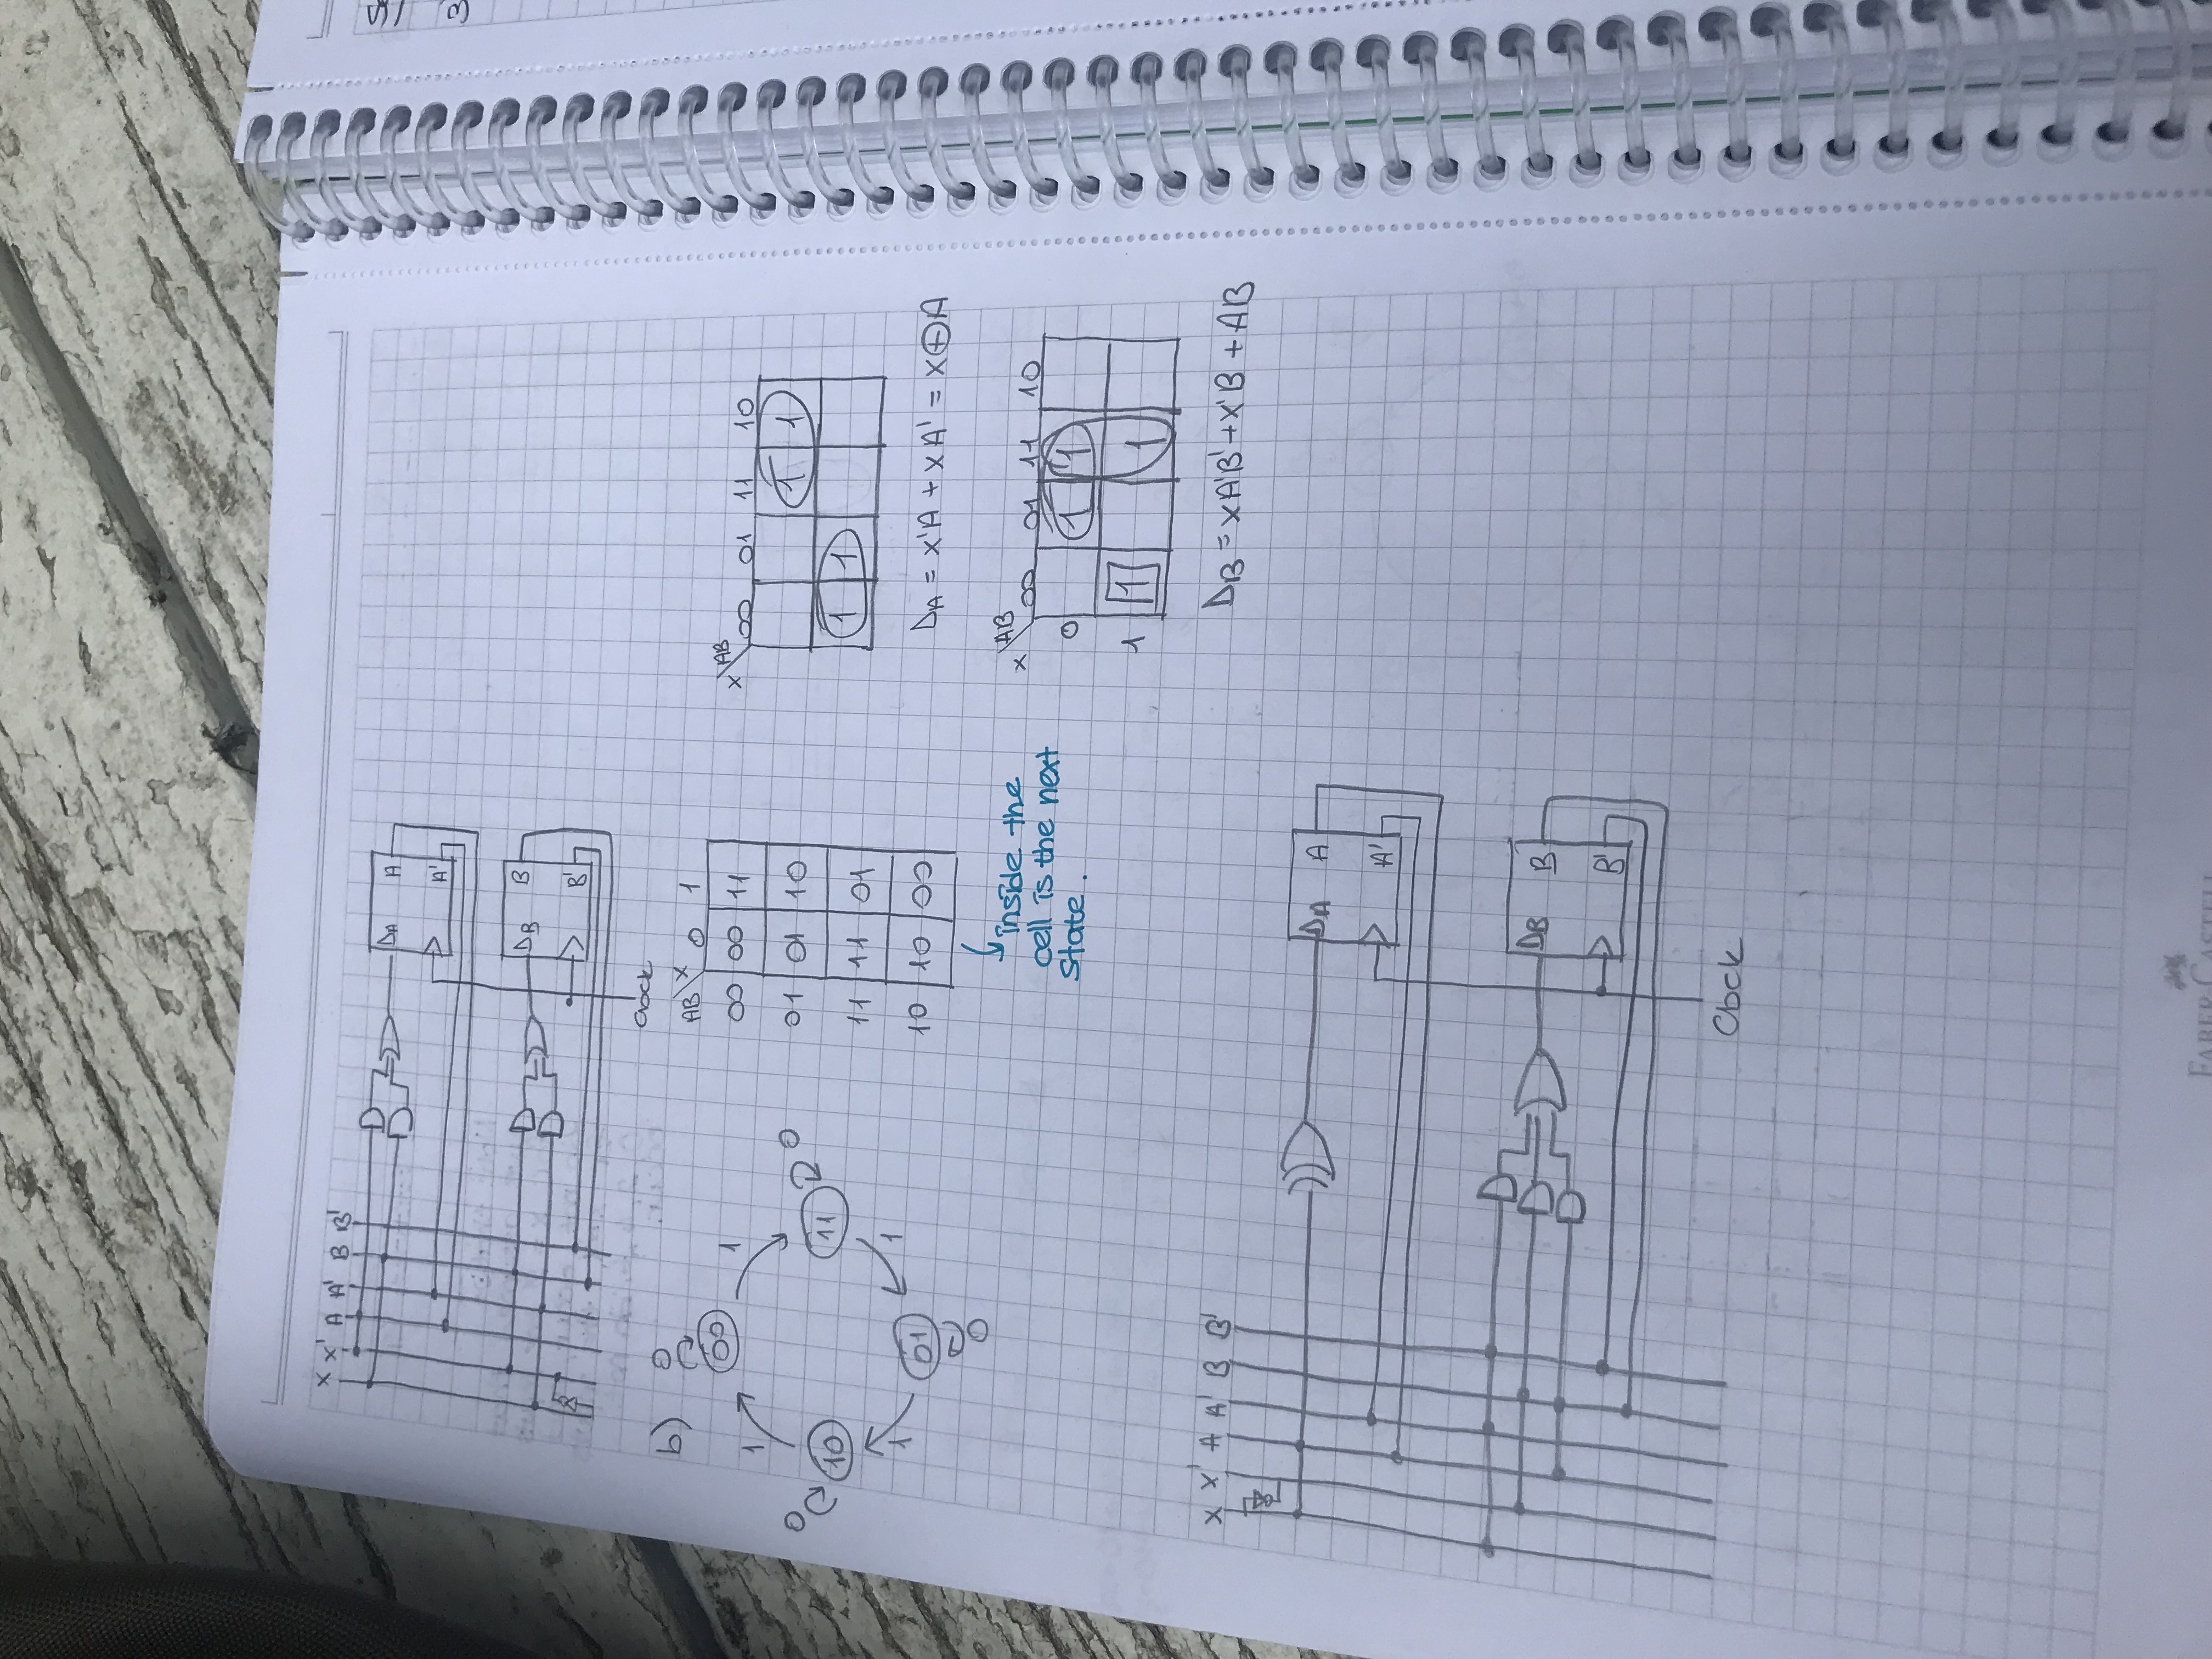 x x' A A' B B'
DA A
A'
DB B
B'
Clock
b)
0
00
1
1
0
10
11
0
1
1
01
0
AB x 0 1
00 00 11
01 01 10
11 11 01
10 10 00
inside the
cell is the next
state.
x AB 00 01 11 10
1 1
1 1
DA = x'A + xA' = x⊕A
x AB 00 01 11 10
0 1 1
1 1 1
DB = xA'B' + x'B + AB
x x' A A' B B'
DA A
A'
DB B
B'
Clock
FABER-CASTELL